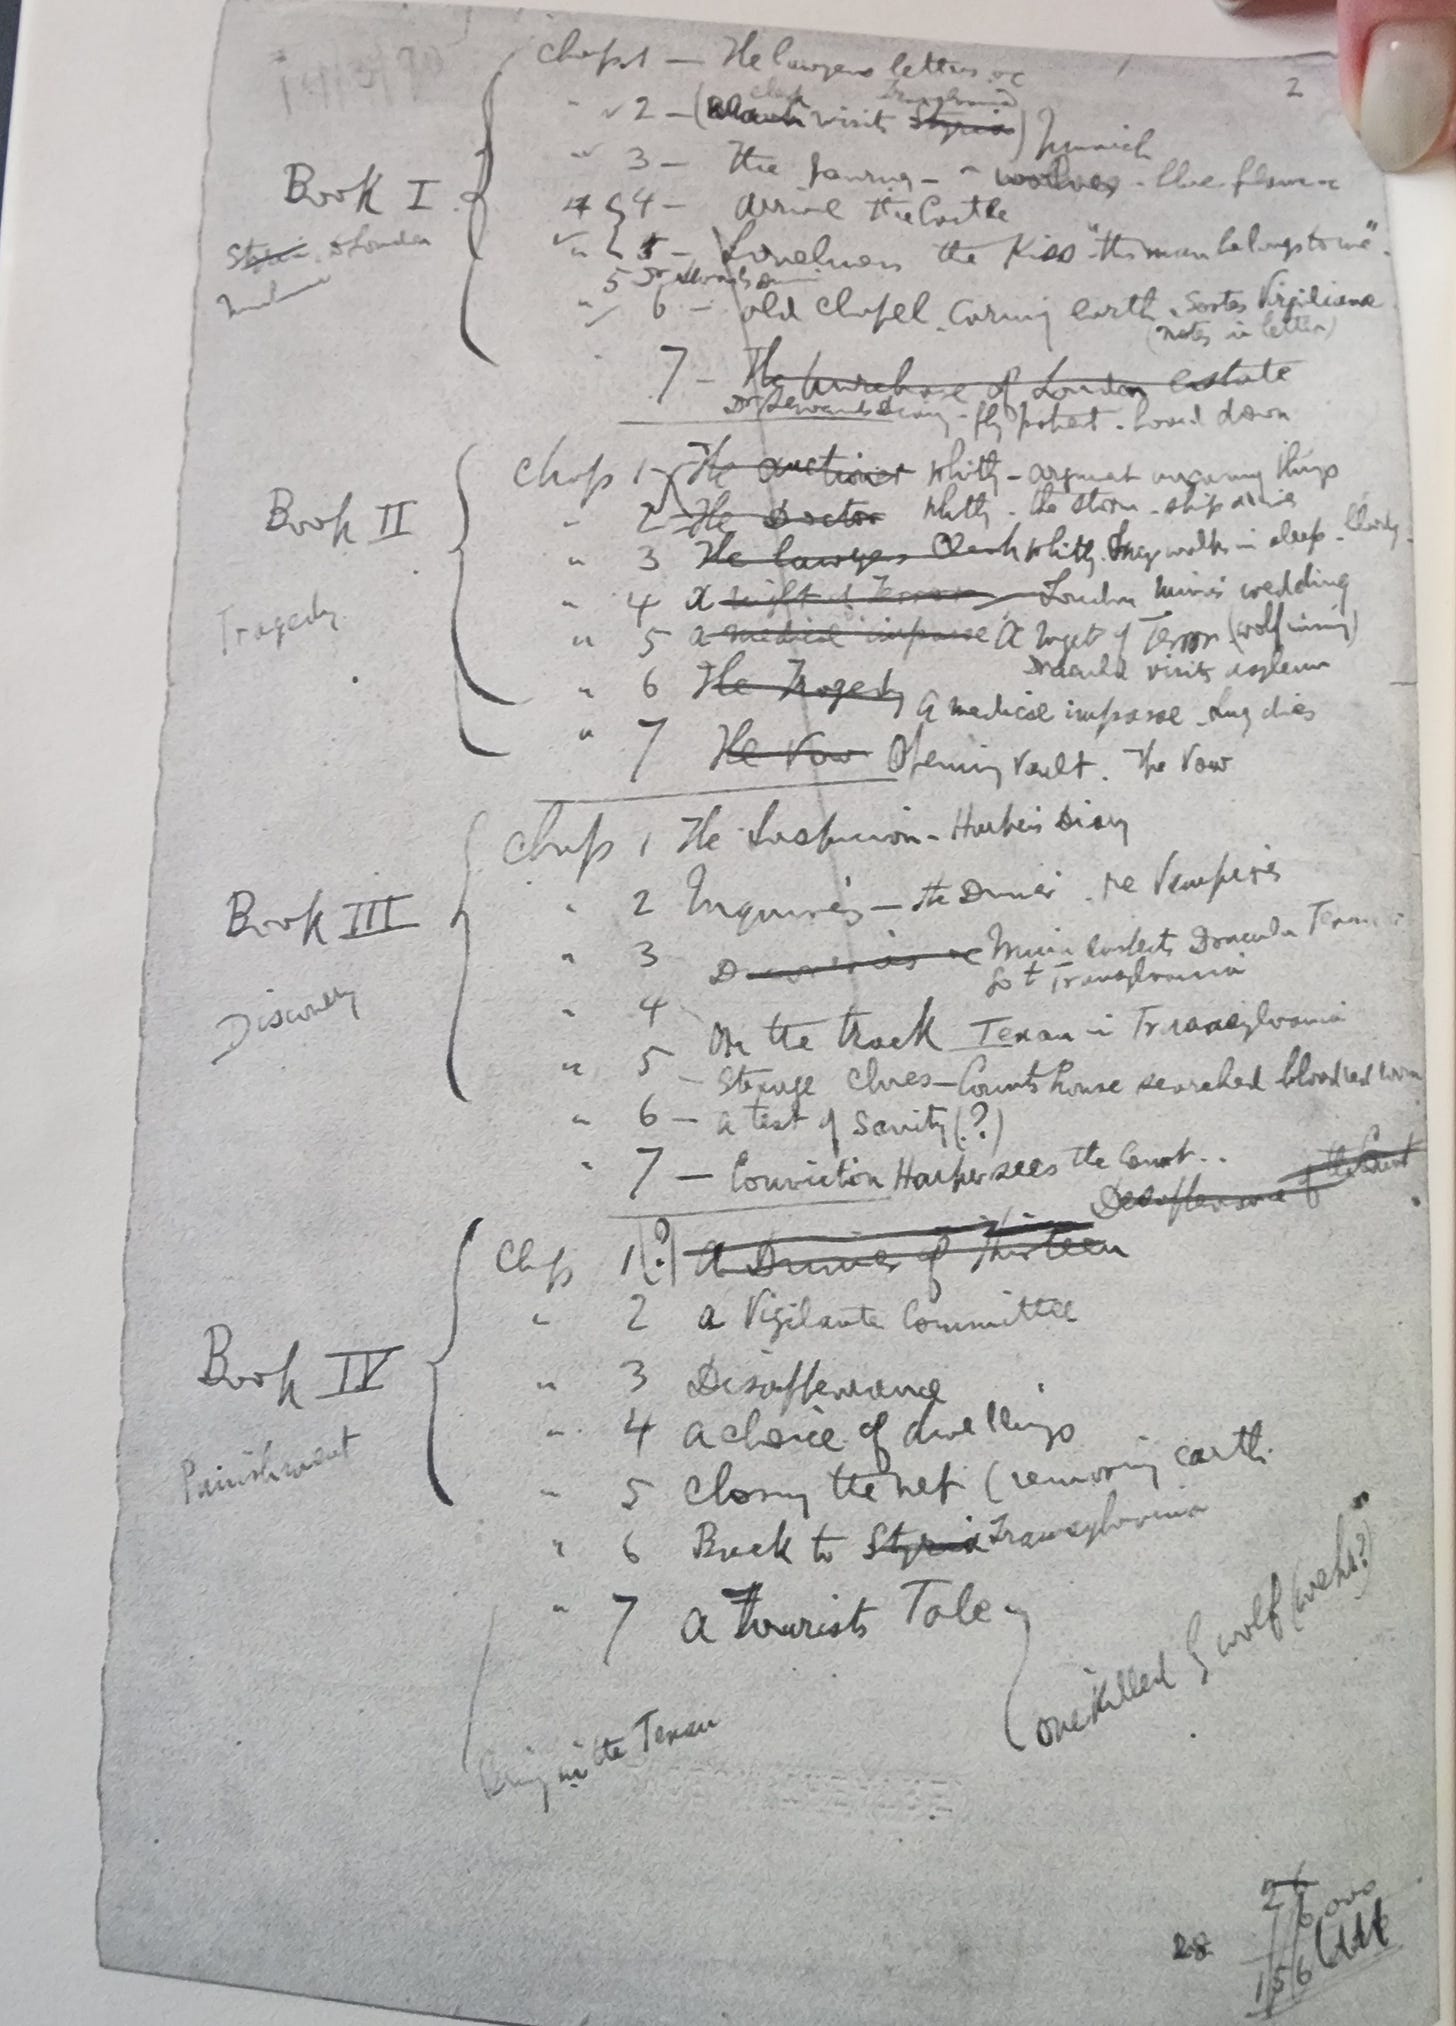 2
Chap 1 — The lawyers letters &c
clerk Transylvania
" 2 — ( visits Styria) Munich
" 3 — The journey — wolves - blue flames &c
Book I
" 4 — arrive the Castle
Styria to London
" 5 — Loneliness the Kiss "this man belongs to me"
5 Dr Sewards Diary
" 6 — old chapel. carrying earth. Sortes Virgilianae
(notes in letter)
7 — The purchase of London estate
Dr Sewards diary - fly patient - hound down
Book II
Tragedy
Chap 1 — The auctioneer Whitby — argument uncanny things
" 2 The Doctor Whitby - the storm - ship arrives
" 3 The lawyers Clerk Whitby. Lucy walks in sleep - bloody
" 4 A night of Terror — London Mina's wedding
" 5 a medical impasse A night of Terror (wolf missing)
Dracula visits asylum
" 6 The Tragedy A medical impasse - Lucy dies
" 7 The Vow Opening vault. The Vow
Book III
Discovery
Chap 1 The Suspicion - Harker's Diary
" 2 Inquiries — the Dinner. re Vampires
" 3 Discoveries &c Mina suspects Dracula Texan
go to Transylvania
" 4 On the track Texan in Transylvania
" 5 — Strange Clues — Counts house searched blood red room
" 6 — a test of Sanity (?)
" 7 — Conviction Harker sees the Count..
Disappearance of the Count
Book IV
Punishment
Chap 1 (?) A Dinner of Thirteen
" 2 a Vigilante Committee
" 3 Disappearance
" 4 a choice of dwellings
" 5 Closing the net (removing earth
" 6 Back to Styria Transylvania
" 7 A tourists Tale
one killed by wolf (wehr?)
Bring in the Texan
26
6000
28
156